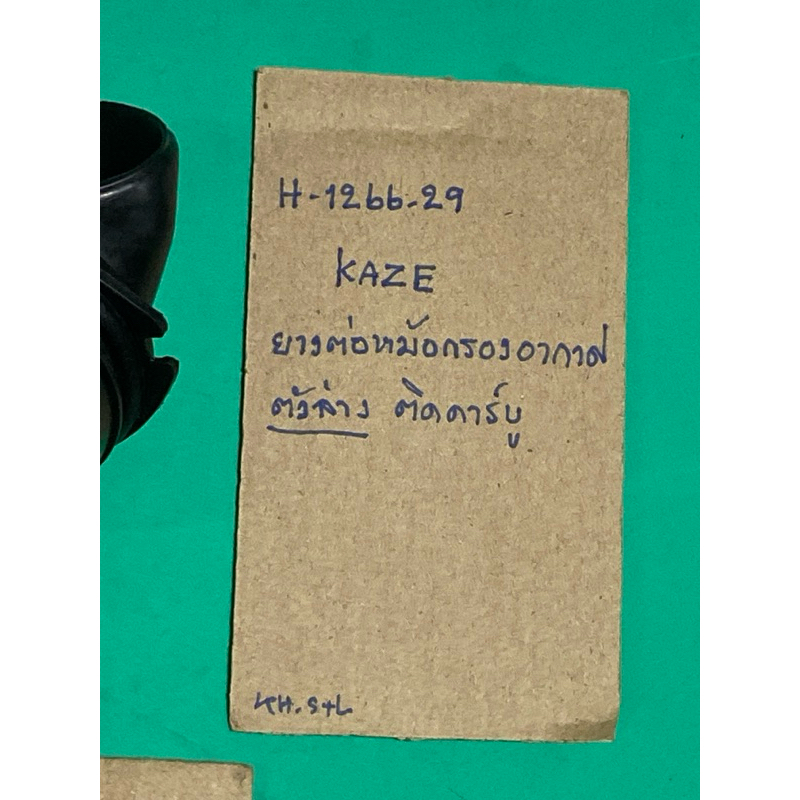 H-1266-29
KAZE
ยางต่อหม้อกรองอากาศ
ตัวล่าง ติดคาร์บู
KH.S+L